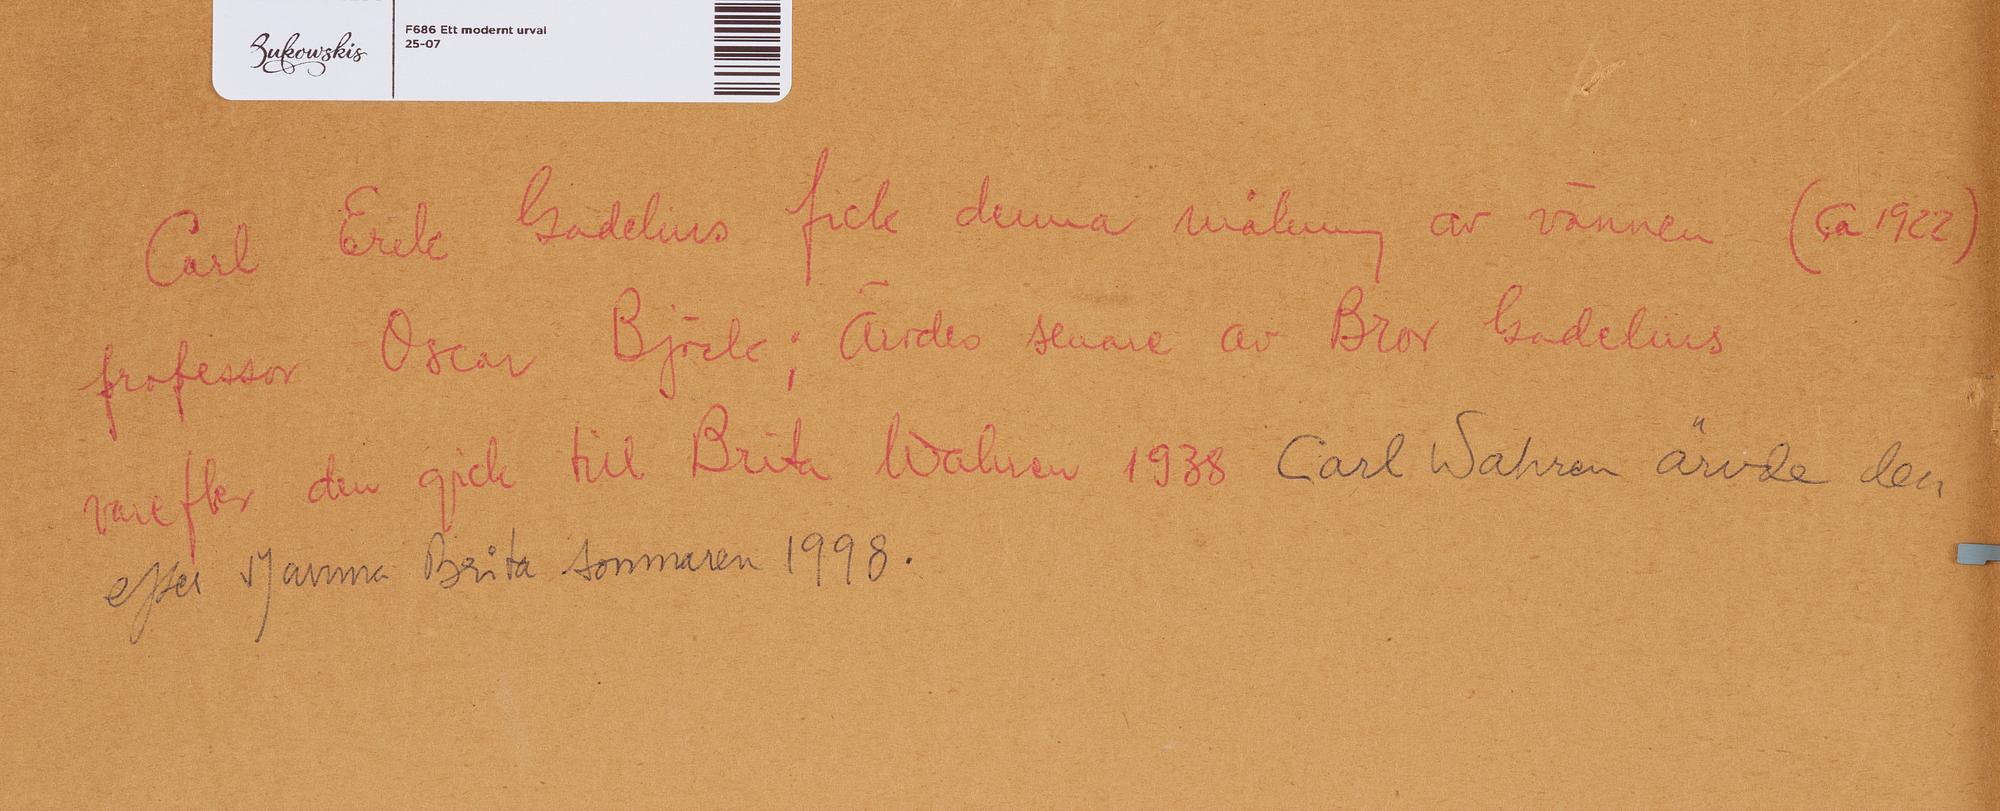 Bukowskis
F686 Ett modernt urval
25-07
Carl Erik Gadelius fick denna målning av vännen (ca 1922)
professor Oscar Björck; Ärvdes senare av Bror Gadelius
varefter den gick till Brita Wahren 1938 Carl Wahren ärvde den
efter Mamma Brita sommaren 1998.